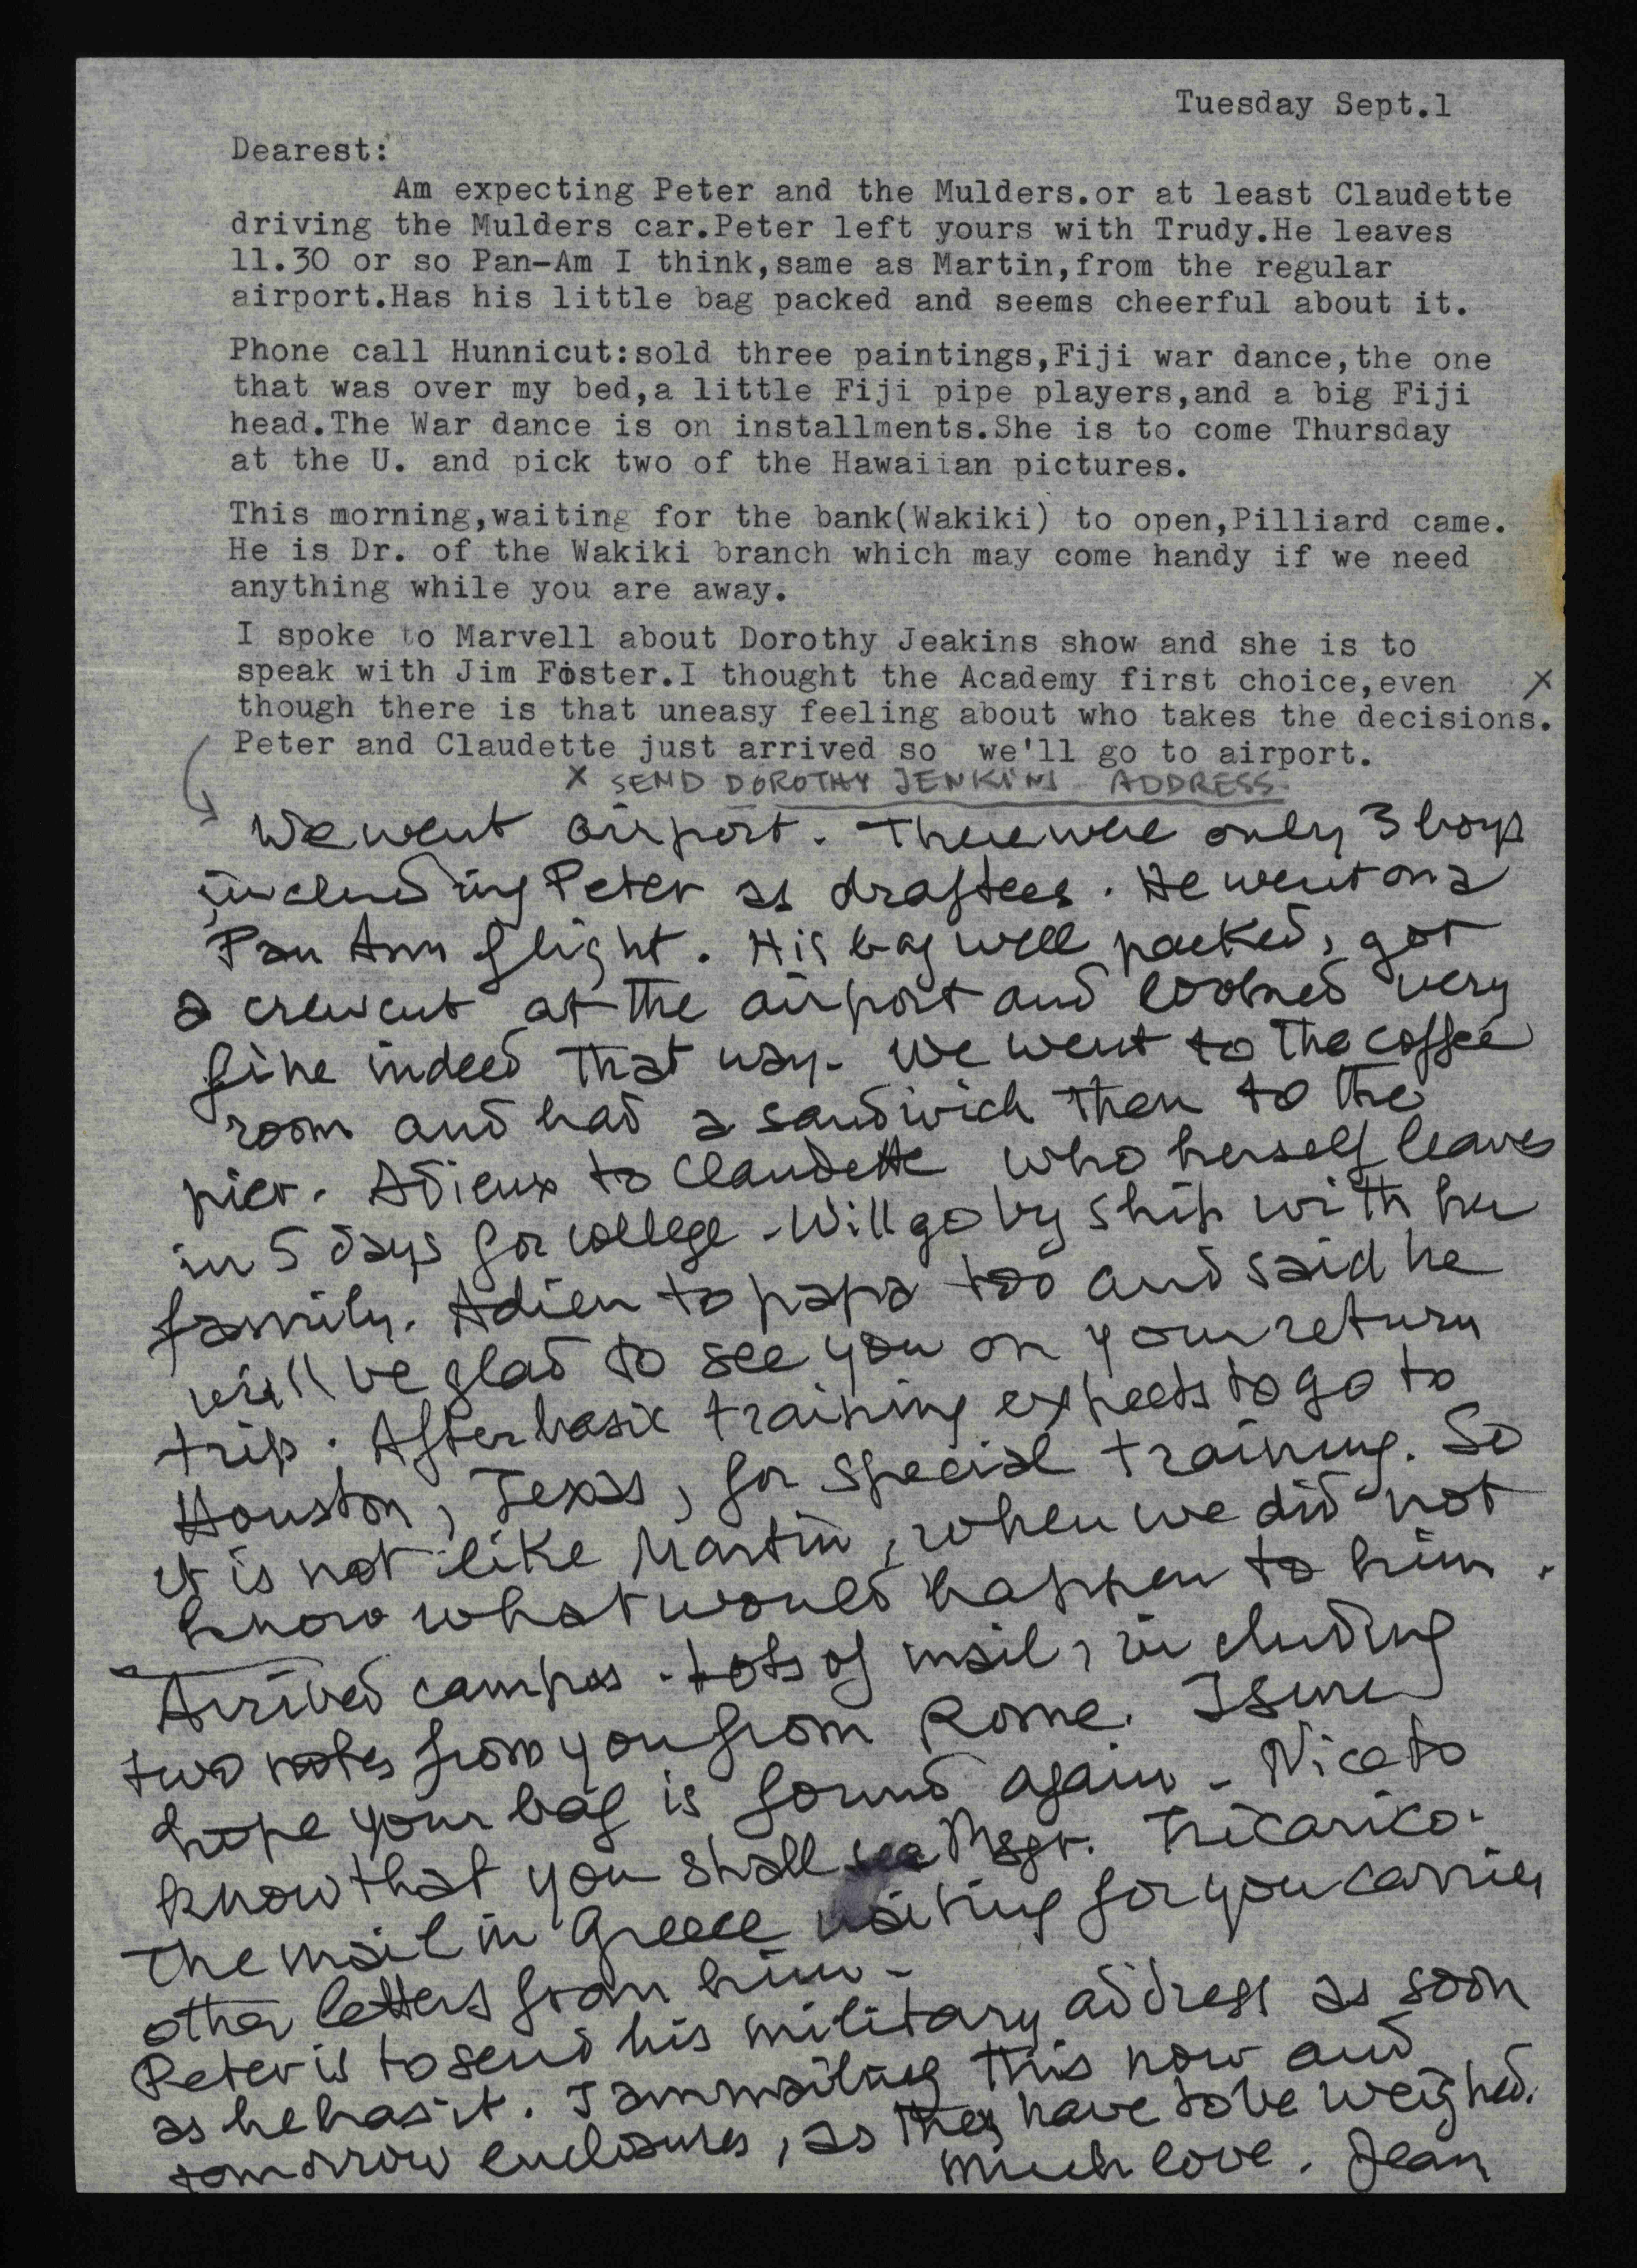 Tuesday Sept.1
Dearest:
Am expecting Peter and the Mulders.or at least Claudette
driving the Mulders car.Peter left yours with Trudy.He leaves
11.30 or so Pan-Am I think,same as Martin,from the regular
airport.Has his little bag packed and seems cheerful about it.
Phone call Hunnicut:sold three paintings,Fiji war dance,the one
that was over my bed,a little Fiji pipe players,and a big Fiji
head.The War dance is on installments.She is to come Thursday
at the U. and pick two of the Hawaiian pictures.
This morning,waiting for the bank(Wakiki) to open,Pilliard came.
He is Dr. of the Wakiki branch which may come handy if we need
anything while you are away.
I spoke to Marvell about Dorothy Jeakins show and she is to
speak with Jim Foster.I thought the Academy first choice,even X
though there is that uneasy feeling about who takes the decisions.
Peter and Claudette just arrived so we'll go to airport.
X SEND DOROTHY JENKINS ADDRESS.
We went airport. There were only 3 boys
including Peter as draftees. He went on a
Pan Am flight. His bag well packed, got
a crewcut at the airport and looked very
fine indeed that way. We went to the coffee
room and had a sandwich then to the
pier. Adieux to Claudette who herself leaves
in 5 days for college. Will go by ship with her
family. Adieu to papa too and said he
will be glad to see you on your return
trip. After basic training expects to go to
Houston, Texas, for special training. So
it is not like Martin, when we did not
know what would happen to him.
Arrived campus. Lots of mail, including
two notes from you from Rome. I sure
hope your bag is found again. Nice to
know that you shall see Msgr. Tricarico.
The mail in Greece waiting for you carries
other letters from him.
Peter is to send his military address as soon
as he has it. I am mailing this now and
tomorrow enclosures, as they have to be weighed.
Much love. Jean